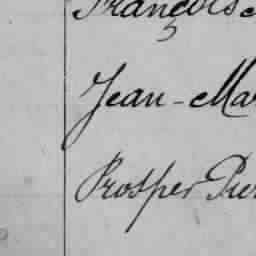 François
Jean-Ma
Prosper Pier